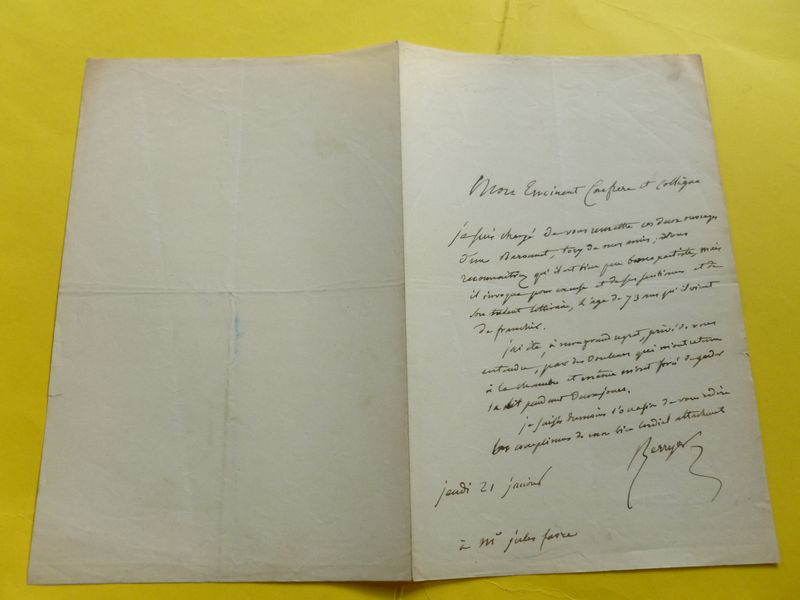 Mon Eminent Confrere et Collègue
je suis chargé de vous remettre ces deux ouvrages
d'un Baronnet, tory de mes amis; vous
reconnaitrez qu'il est bien peu bonapartiste, mais
il invoque pour excuse et de ses opinions et de
son talent littéraire, l'age de 73 ans qu'il vient
de franchir.
j'ai été, à mon grand regret, privé de vous
entendre, par des douleurs qui m'ont retenu
à la chambre et même m'ont forcé de garder
le lit pendant deux jours.
je saisis du moins l'occasion de vous redire
les complimens de mon bien cordial attachement
Berryer
jeudi 21 janvier
à Mr jules favre